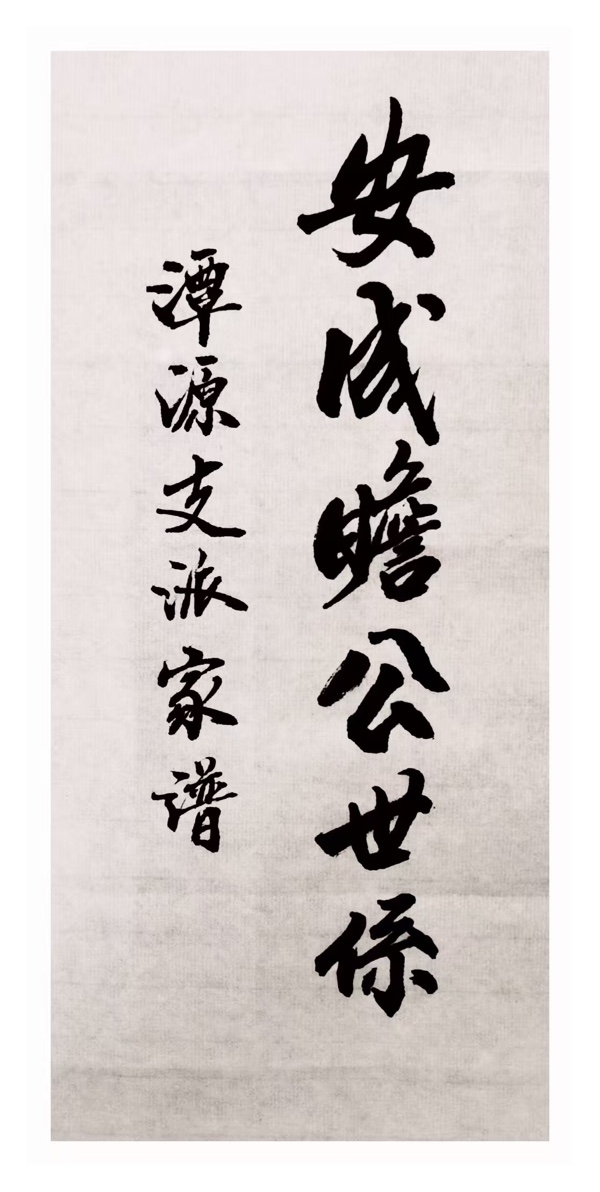 安成瞻公世係
潭源支派家譜